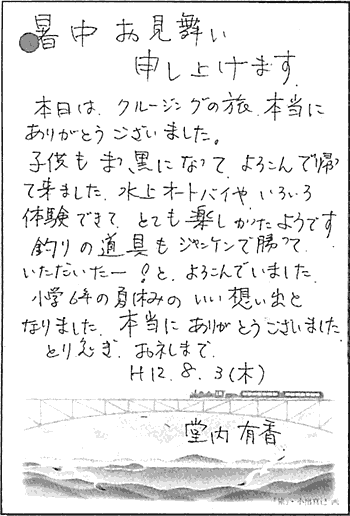 暑中お見舞い
申し上げます
本日は、クルージングの旅、本当に
ありがとうございました。
子供もまっ黒になって、よろこんで帰っ
て来ました。水上オートバイや、いろいろ
体験できて、とても楽しかったようです
釣りの道具もジャンケンで勝って、
いただいたー!と、よろこんでいました。
小学6年の夏休みの いい想い出と
なりました。本当に ありがとうございました
とり急ぎ、お礼まで、
H12.8.3(木)
堂内 有香